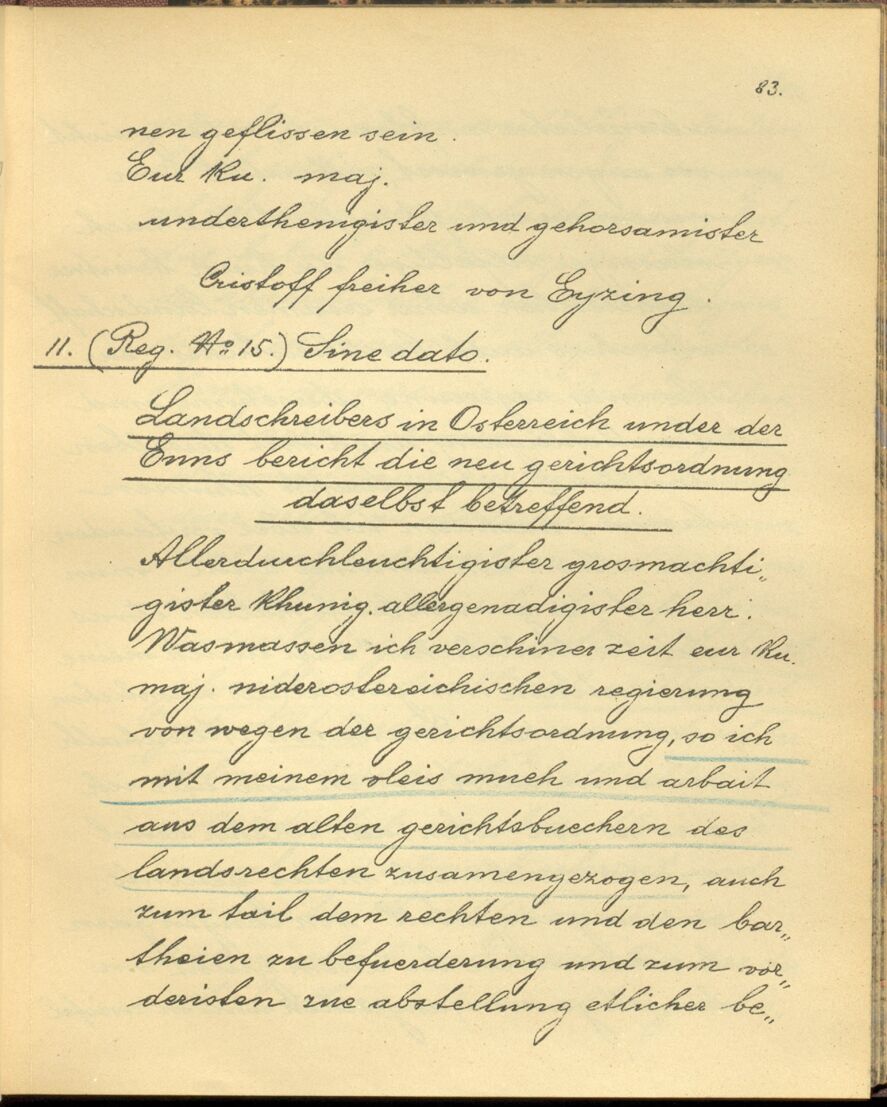 83.
nen geflissen sein.
Eur ku. maj.
underthenigister und gehorsamister
Cristoff freiher von Eyzing.
11. (Reg. No 15.) Sine dato.
Landschreibers in Osterreich under der
Enns bericht die neu gerichtsordnung
daselbst betreffend.
Allerdurchleuchtigister grosmachti„
gister khunig. allergenadigister herr.
Wasmassen ich verschiner zeit eur ku.
maj. niderostereichischen regierung
von wegen der gerichtsordnung, so ich
mit meinem vleis mueh und arbait
aus dem alten gerichtsbuechern des
landsrechten zusamengezogen, auch
zum tail dem rechten und den bar„
theien zu befuerderung und zum vor„
deristen zue abstellung etlicher be„